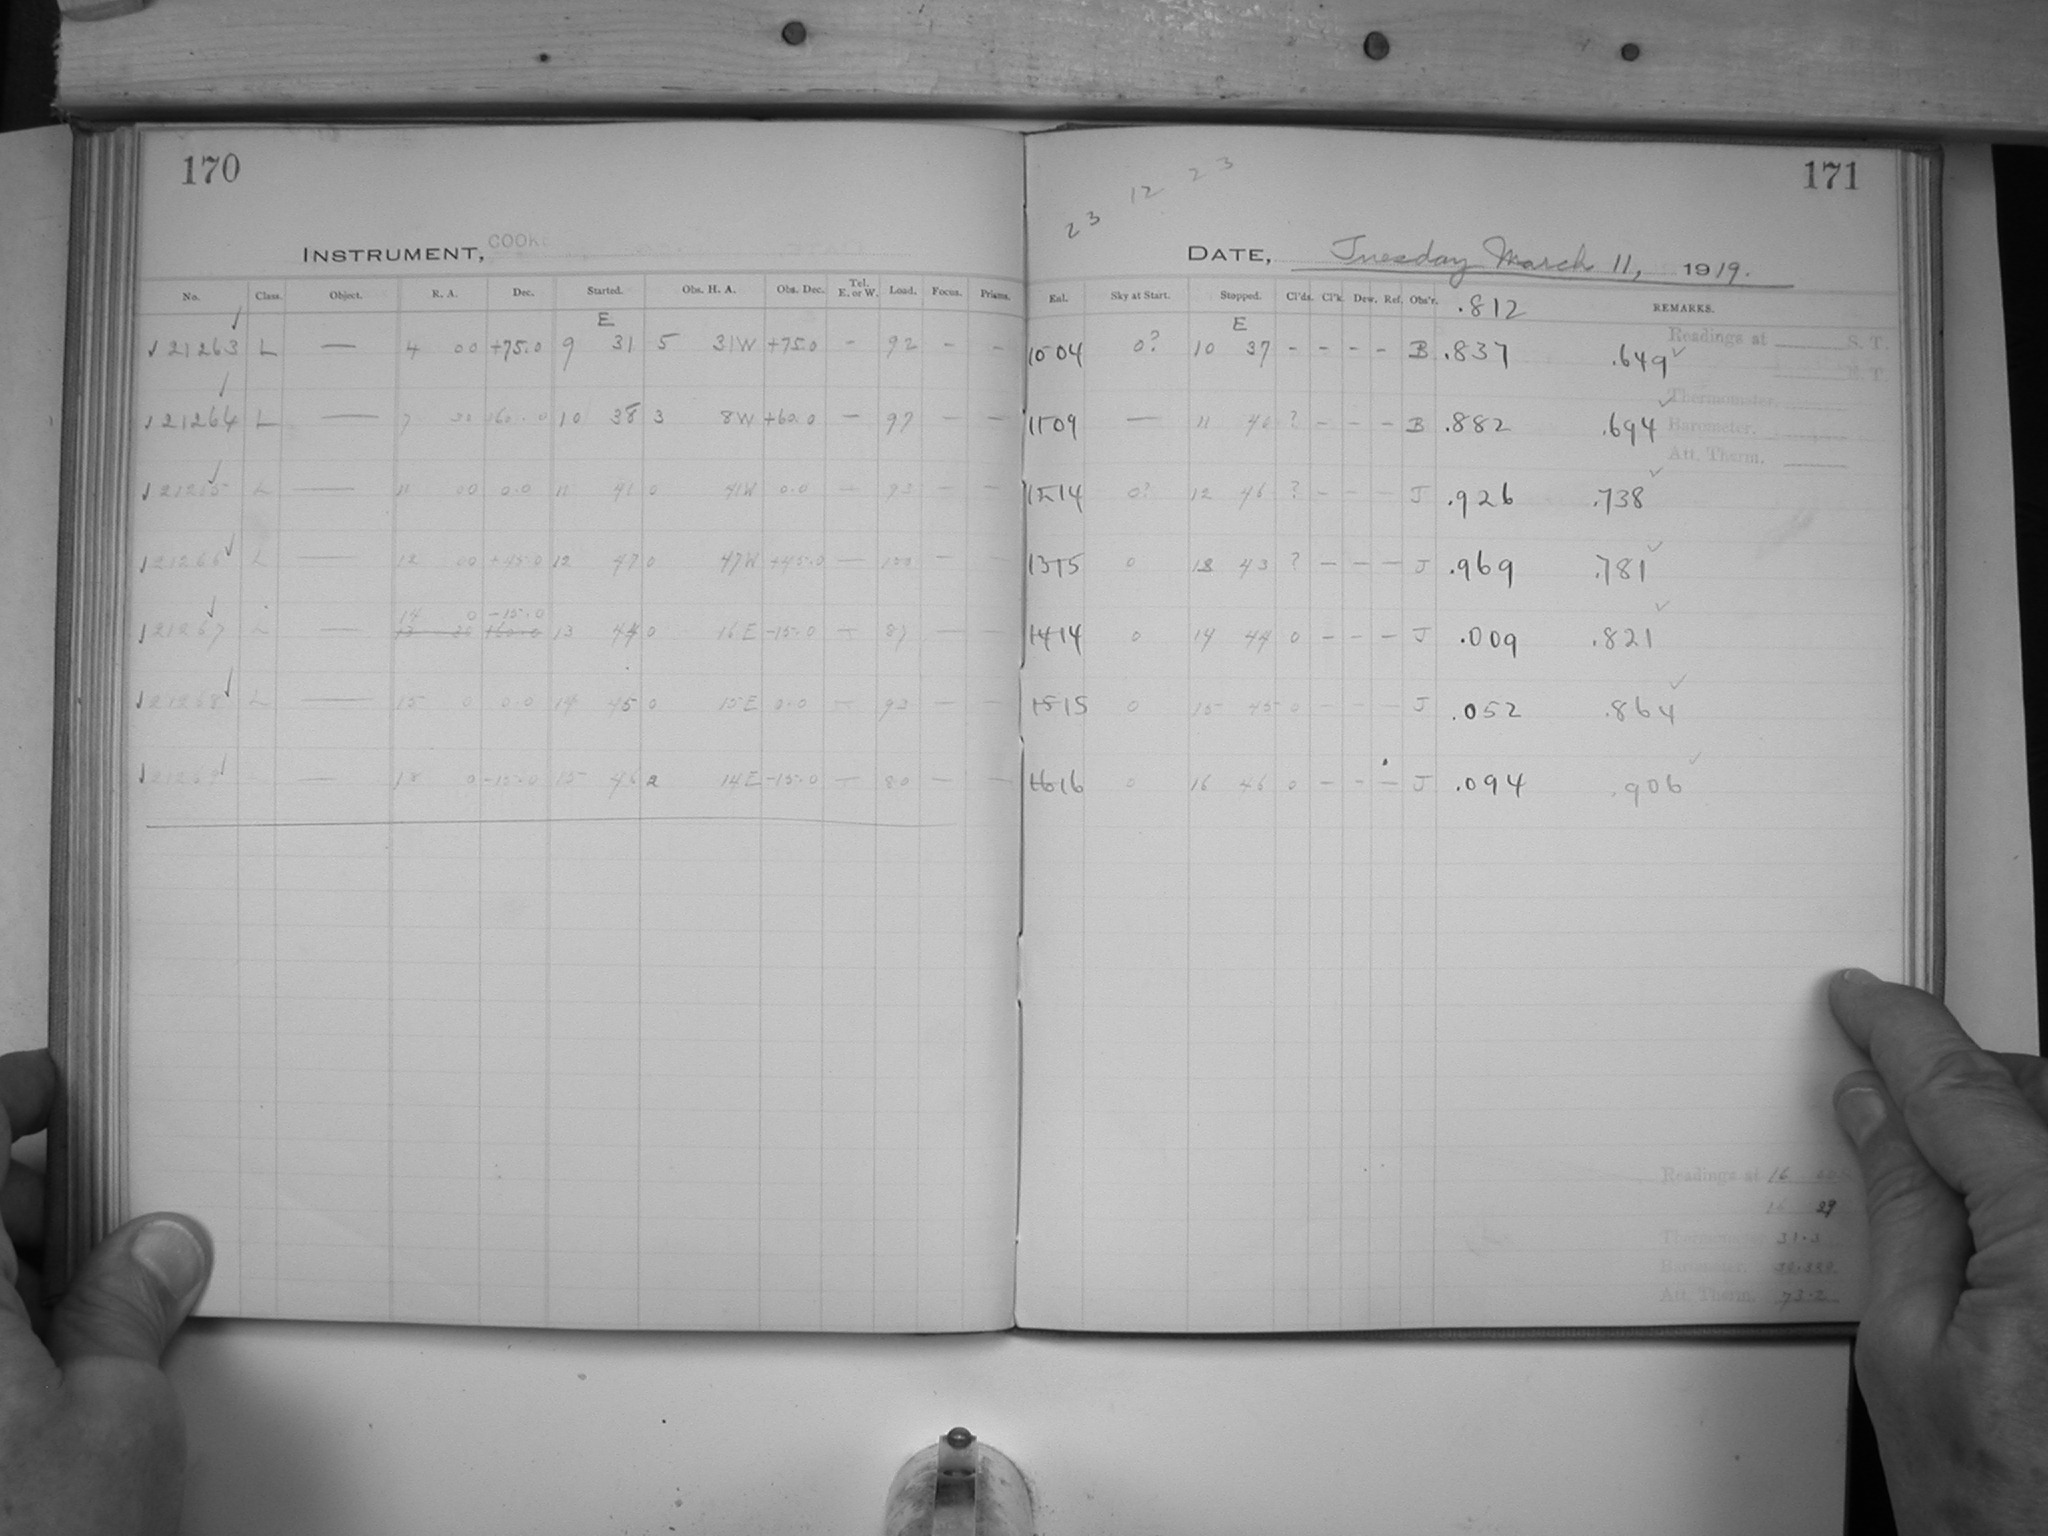 170
INSTRUMENT, COOKE
No. Class. Object. R. A. Dec. Started. Obs. H. A. Obs. Dec. Tel. E. or W. Load. Focus. Prisms.
E
21263 L — 4 00 +75.0 9 31 5 31W +75.0 - 92 - -
21264 L — 7 30 +60.0 10 38 3 8W +60.0 — 97 — —
21265 L — 11 00 0.0 11 41 0 41W 0.0 — 93 — —
21266 L — 12 00 +45.0 12 47 0 47W +45.0 — 100 — —
14 0 -15.0
21267 L — 13 30 +60.0 13 44 0 16E -15.0 — 87 — —
21268 L — 15 0 0.0 14 45 0 15E 0.0 — 93 — —
21269 — 18 0 -15.0 15 46 2 14E -15.0 — 80 — —
171
23 12 23
DATE, Tuesday March 11, 1919.
Exl. Sky at Start. Stopped. Cl'ds. Cl'k. Dew. Ref. Obs'r. .812 REMARKS.
E
Readings at S. T.
E. T.
1004 0? 10 37 - - - - B .837 .649
Thermometer,
1109 — 11 40 ? - - - B .882 .694
Barometer,
Att. Therm.
1214 0? 12 46 ? - - - J .926 .738
1315 0 13 43 ? - - - J .969 .781
1414 0 14 44 0 - - - J .009 .821
1515 0 15 45 0 - - - J .052 .864
1616 0 16 46 0 - - - J .094 .906
Readings at 16 00
16 39
Thermometer 31.3
Barometer.
Att. Therm. 73.2